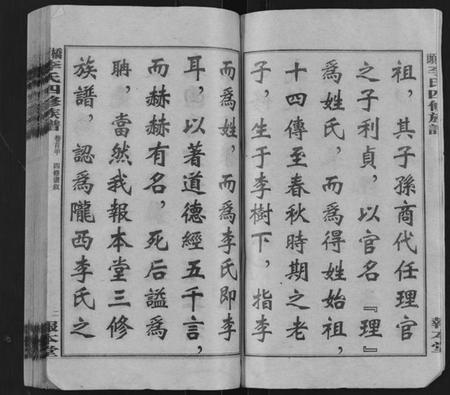 頭李氏四修族譜
報本堂
祖，其子孫商代任理官
之子利貞，以官名『理』
爲姓氏，而爲得姓始祖，
十四傳至春秋時期之老
子，生于李樹下，指李
而爲姓，而爲李氏即李
耳，以著道德經五千言，
而赫赫有名，死后謚爲
聃，當然我報本堂三修
族譜，認爲隴西李氏之
橋李氏四修族譜
四修
二
報本堂